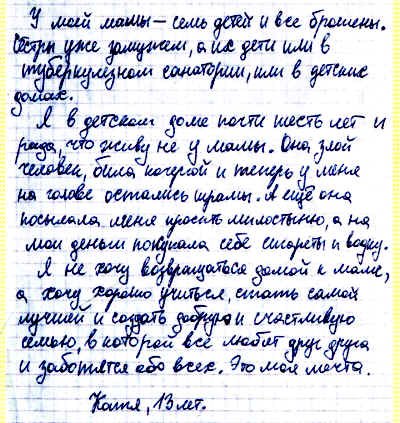 У моей мамы – семь детей и все брошены.
Сёстры уже замужем, а их дети или в
туберкулезном санатории, или в детских
домах.
Я в детском доме почти шесть лет и
рада, что живу не у мамы. Она, злой
человек, била кочергой и теперь у меня
на голове остались шрамы. А ещё она
посылала меня просить милостыню, а на
мои деньги покупала себе сигареты и водку.
Я не хочу возвращаться домой к маме,
а хочу хорошо учиться, стать самой
лучшей и создать добрую и счастливую
семью, в которой все любят друг друга
и заботятся обо всех. Это моя мечта.
Катя, 13 лет.